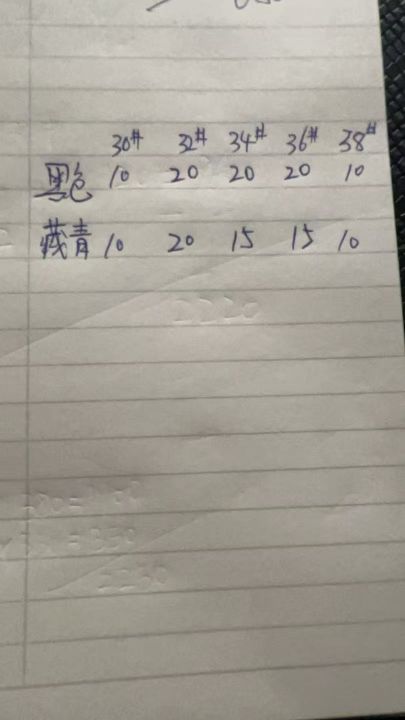 30# 32# 34# 36# 38#
黑色 10 20 20 20 10
藏青 10 20 15 15 10
2230